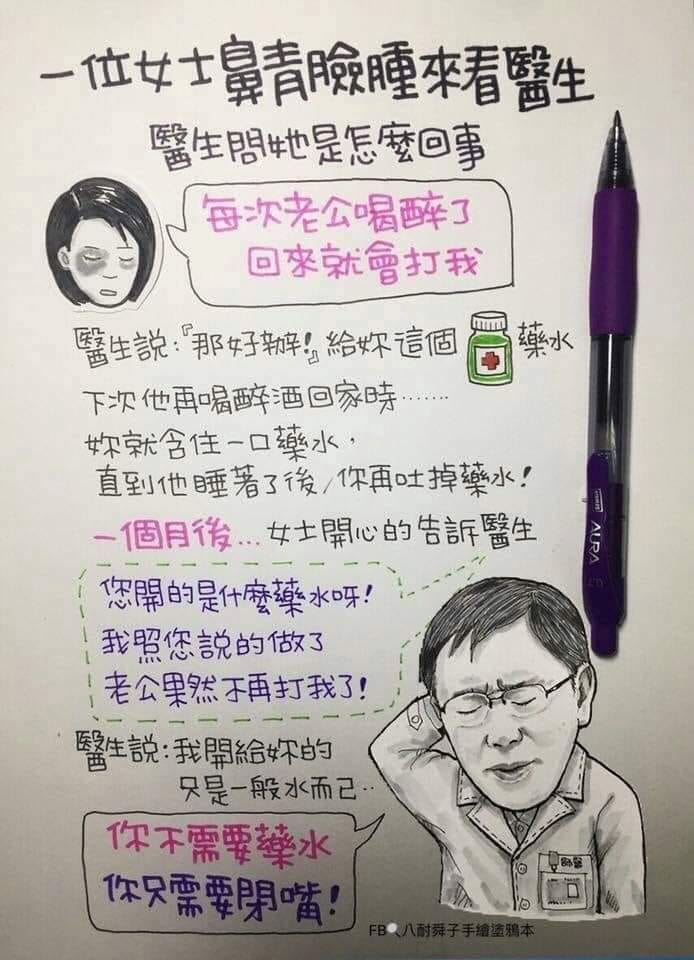 一位女士鼻青臉腫來看醫生
醫生問她是怎麼回事
每次老公喝醉了
回來就會打我
醫生說:『那好辦!』給妳這個藥水
下次他再喝醉酒回家時……
妳就含住一口藥水,
直到他睡著了後/你再吐掉藥水!
一個月後... 女士開心的告訴醫生
您開的是什麼藥水呀!
我照您說的做了
老公果然不再打我了!
醫生說:我開給妳的
只是一般水而己..
你不需要藥水
你只需要閉嘴!
師醫
AURA
0.7
FB 八耐舜子手繪塗鴉本